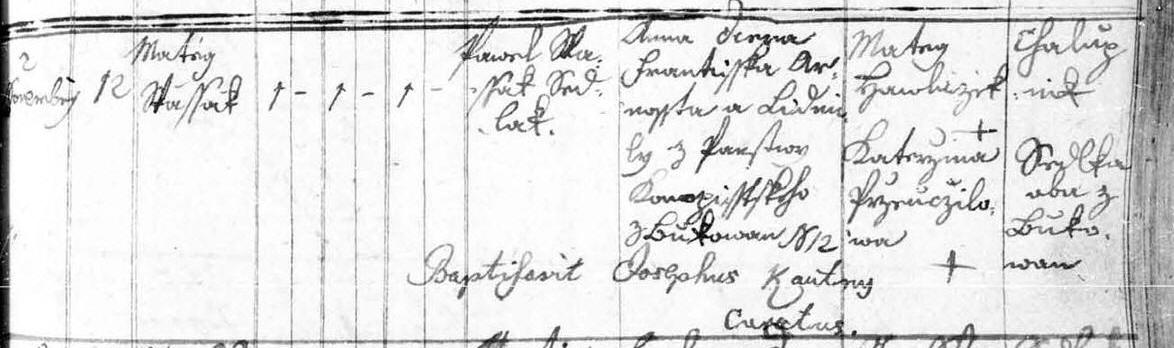 2
Novembris 12
Matěg
Wassak 1 - 1 - 1 -
Pawel Wa-
ssak Sed-
lak.
Anna dcera
Frantisska Ar-
nossta a Lidmi-
ly z Panstwi
Konopisstskeho
z Bukowan N 12
Mateg
Hawliczek
+
Katerzina
Przeuczilo-
wa
+
Chalup-
nik
Sedlka
oba z
Buko-
wan
Baptisavit Josephus Kautny
Curatus.